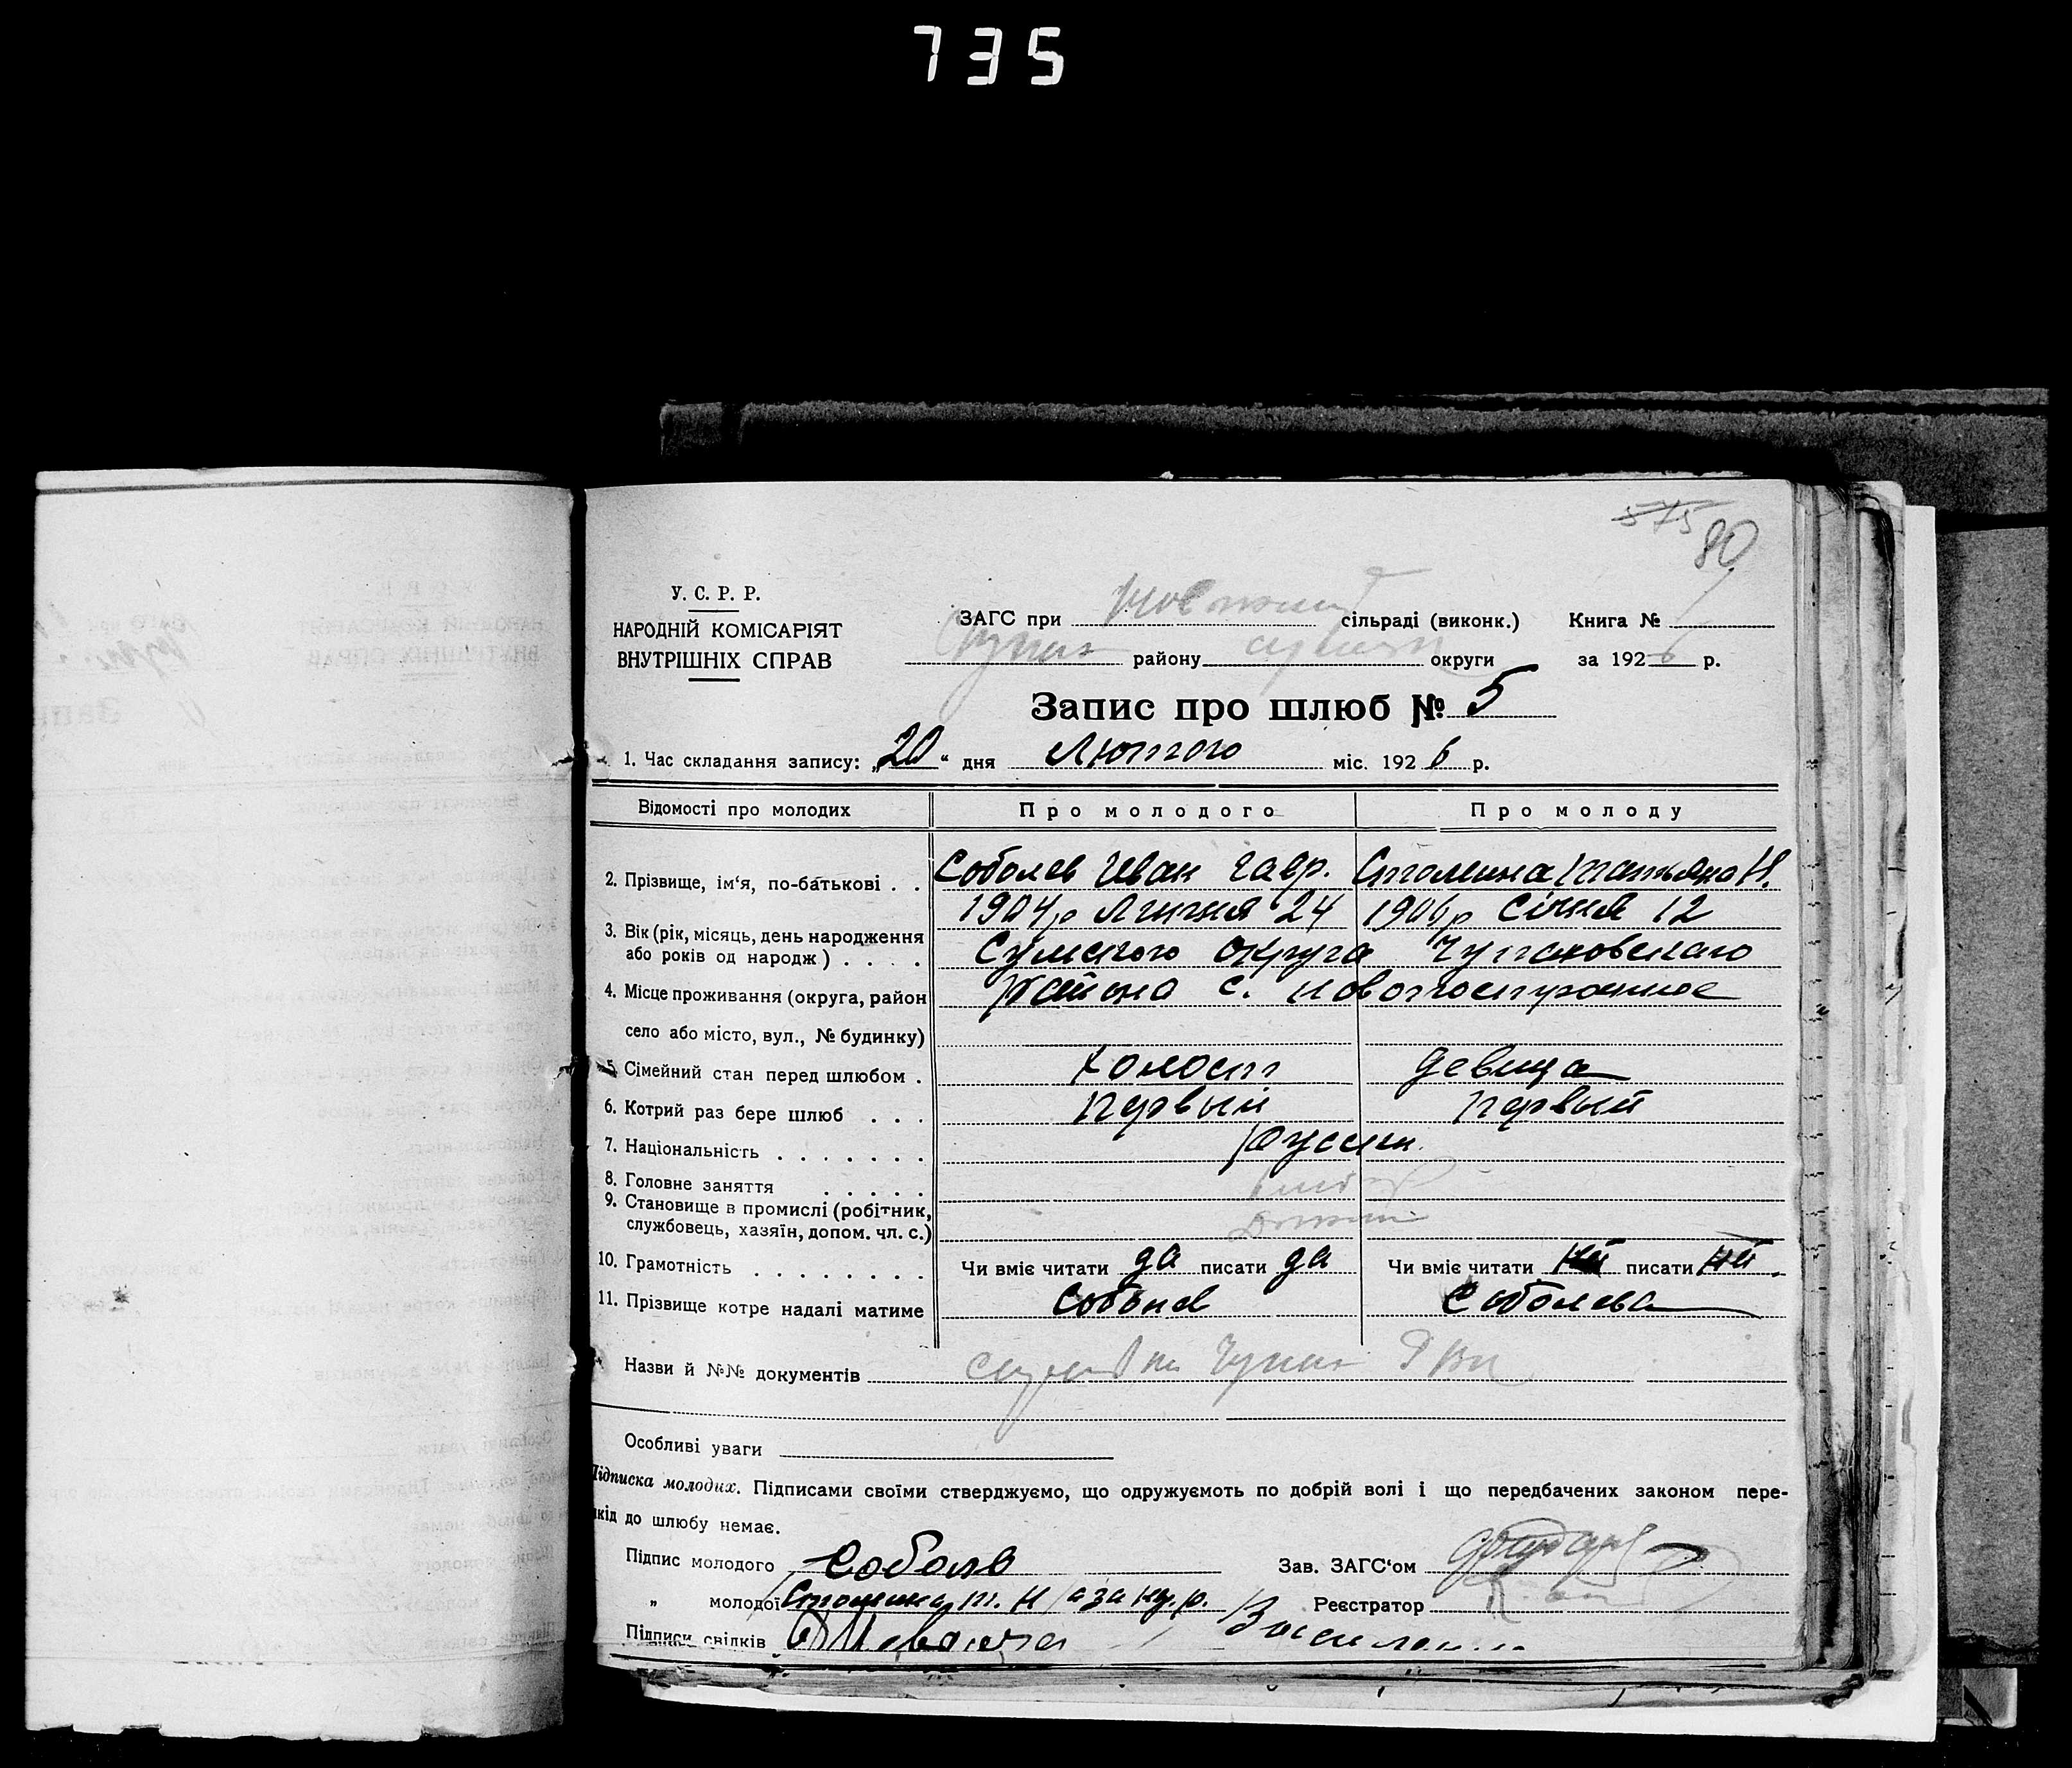 735
575 80
У. С. Р. Р.
НАРОДНІЙ КОМІСАРІЯТ
ВНУТРІШНІХ СПРАВ
ЗАГС при сільраді (виконк.) Книга №
району округи за 1926 р.
Запис про шлюб № 5
1. Час складання запису: „20“ дня Лютого міс. 1926 р.
Відомості про молодих Про молодого Про молоду
2. Прізвище, ім‘я, по-батькові . . Соболев Иван Гавр. Татьяна Н.
1904 р 24 1906 р Січня 12
3. Вік (рік, місяць, день народження
або років од народж) . . . . Сумского округа
4. Місце проживання (округа, район Района с.
село або місто, вул., № будинку)
5. Сімейний стан перед шлюбом . Холост девица
6. Котрий раз бере шлюб . . . Первый Первый
7. Національність . . . . . . . Русск.
8. Головне заняття . . . . .
9. Становище в промислі (робітник,
службовець, хазяїн, допом. чл. с.)
10. Грамотність . . . . . . . . Чи вміє читати да писати да Чи вміє читати писати
11. Прізвище котре надалі матиме Соболев Соболева
Назви й №№ документів
Особливі уваги
Підписка молодих. Підписами своїми стверджуємо, що одружуємоть по добрій волі і що передбачених законом пере-
шкід до шлюбу немає.
Підпис молодого Зав. ЗАГС‘ом
„ молодої Реєстратор
Підписи свідків